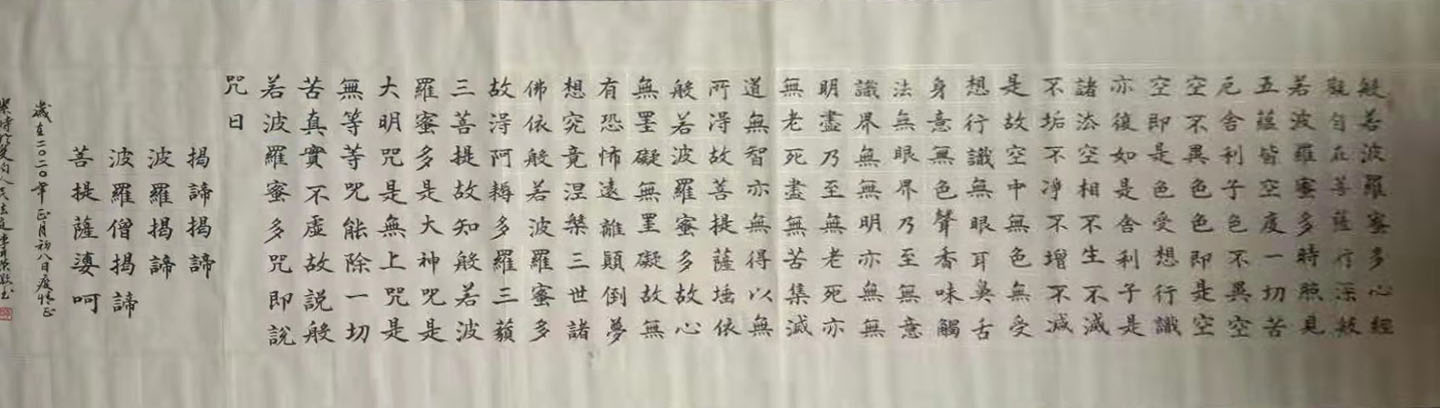 般若波羅蜜多心經
觀自在菩薩行深般
若波羅蜜多時照見
五蘊皆空度一切苦
厄舍利子色不異空
空不異色色即是空
空即是色受想行識
亦復如是舍利子是
諸法空相不生不滅
不垢不淨不增不減
是故空中無色無受
想行識無眼耳鼻舌
身意無色聲香味觸
法無眼界乃至無意
識界無無明亦無無
明盡乃至無老死亦
無老死盡無苦集滅
道無智亦無得以無
所得故菩提薩埵依
般若波羅蜜多故心
無罣礙無罣礙故無
有恐怖遠離顛倒夢
想究竟涅槃三世諸
佛依般若波羅蜜多
故得阿耨多羅三藐
三菩提故知般若波
羅蜜多是大神咒是
大明咒是無上咒是
無等等咒能除一切
苦真實不虛故說般
若波羅蜜多咒即說
咒曰
揭諦揭諦
波羅揭諦
波羅僧揭諦
菩提薩婆呵
歲在二〇二〇年正月初八日疫情正